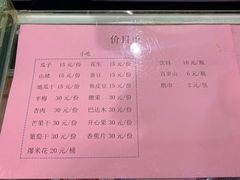 价目表
小吃
瓜子 15元/份 花生 15元/份 饮料 10元/瓶
山楂 15元/份 蚕豆 15元/份 百岁山 6元/瓶
地瓜干 15元/份 鱼皮豆 15元/份 纸巾 2元/包
辛梅 30元/份 腰果 30元/份
杏肉 30元/份 巴达木 30元/份
芒果干 30元/份 开心果 30元/份
葡萄干 30元/份 香蕉片 30元/份
爆米花 20元/桶